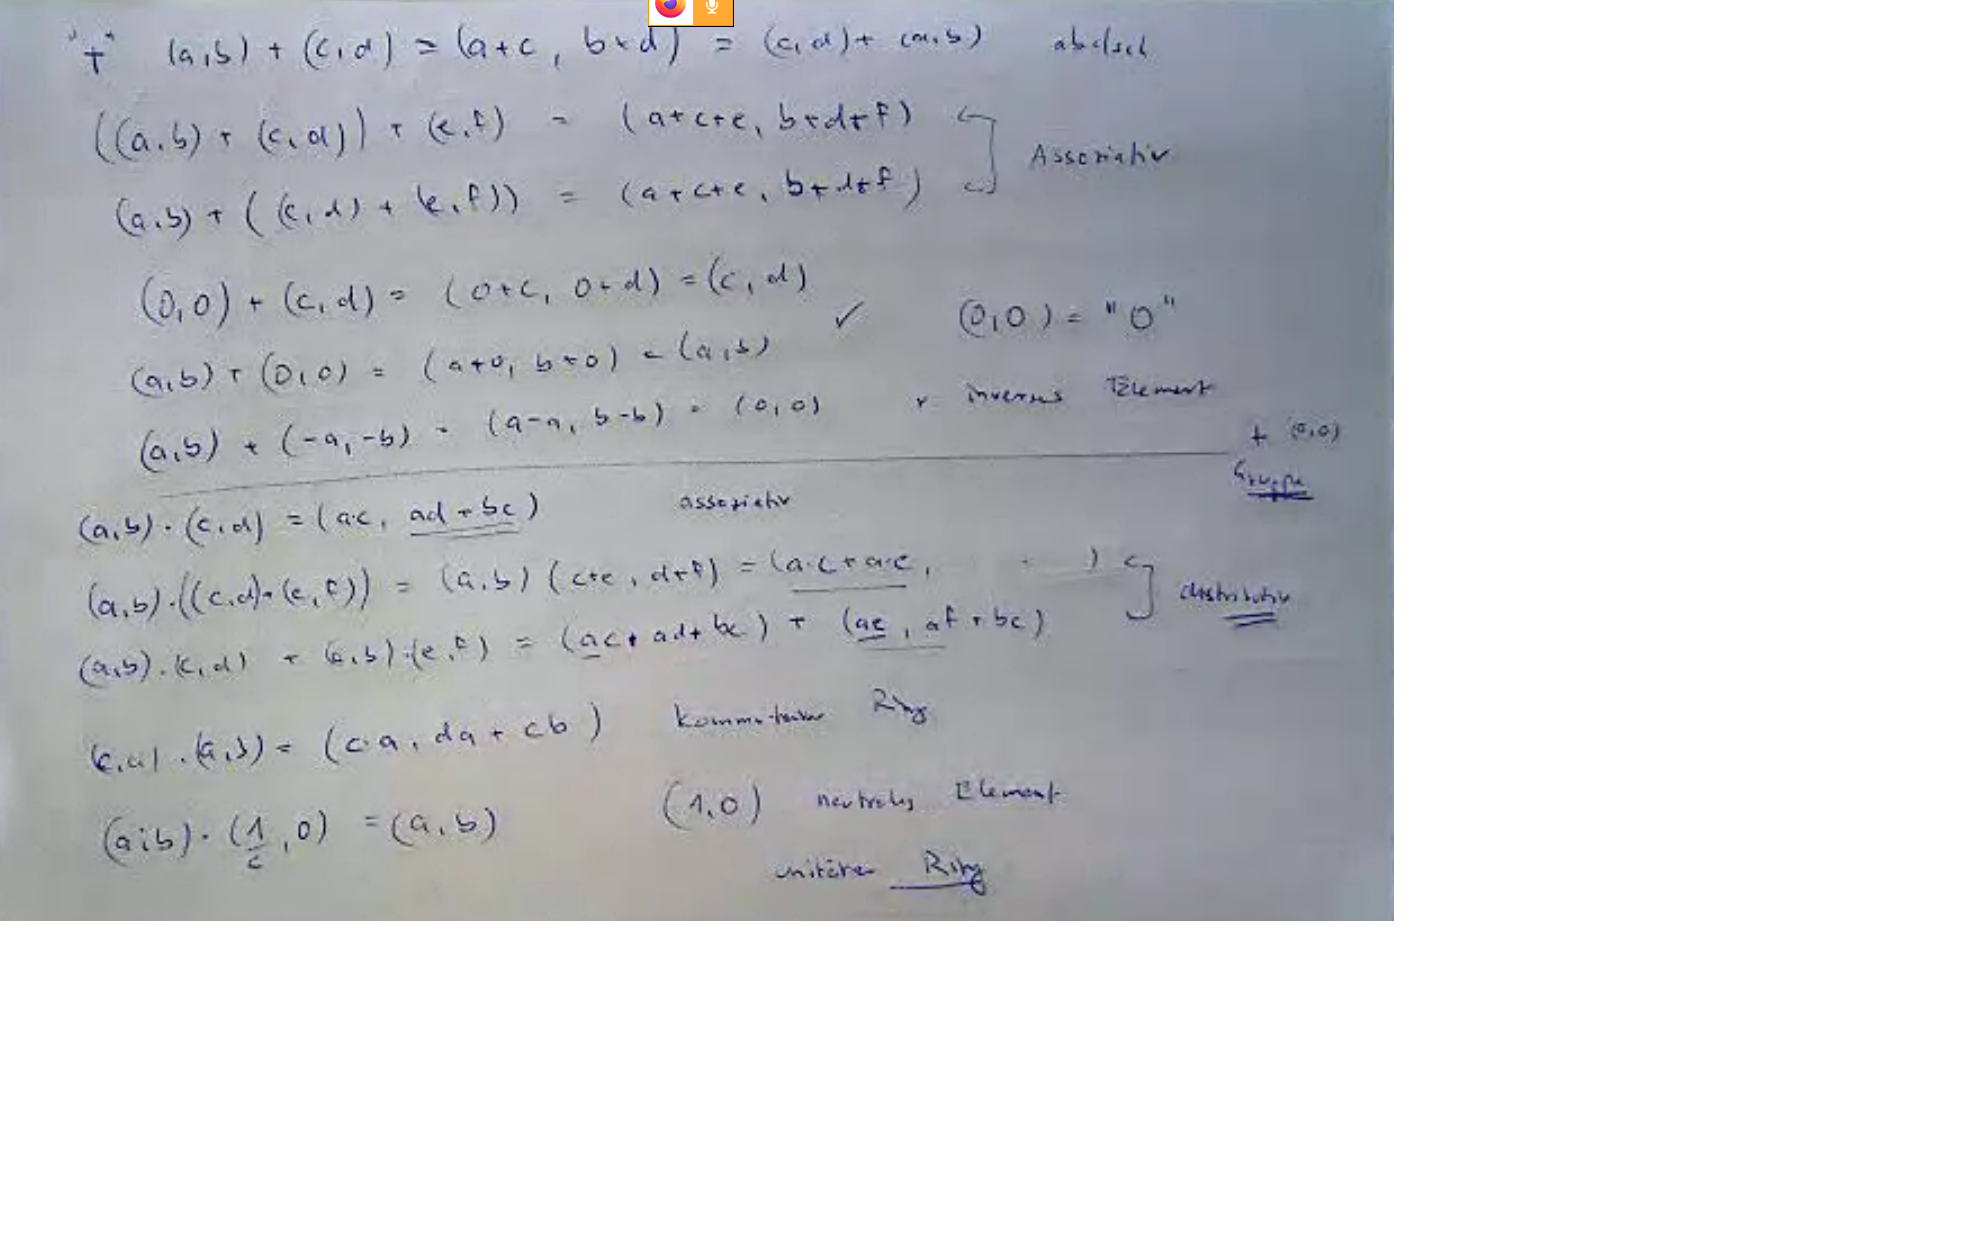 "+" (a,b) + (c,d) = (a+c, b+d) = (c,d) + (a,b) abelsch
((a,b) + (c,d)) + (e,f) = (a+c+e, b+d+f)
Assoziativ
(a,b) + ((c,d) + (e,f)) = (a+c+e, b+d+f)
(0,0) + (c,d) = (0+c, 0+d) = (c,d)
✓ (0,0) = "0"
(a,b) + (0,0) = (a+0, b+0) = (a,b)
(a,b) + (-a,-b) = (a-a, b-b) = (0,0) inverses Element
+ (0,0)
Gruppe
(a,b) · (c,d) = (a·c, ad+bc) assoziativ
(a,b) · ((c,d)+(e,f)) = (a,b) (c+e, d+f) = (a·c+a·e, )
distributiv
(a,b) · (c,d) + (a,b) · (e,f) = (ac, ad+bc) + (ae, af+be)
(c,d) · (a,b) = (c·a, da+cb) kommutativer Ring
(a,b) · (1, 0) = (a,b) (1,0) neutrales Element
c
unitärer Ring